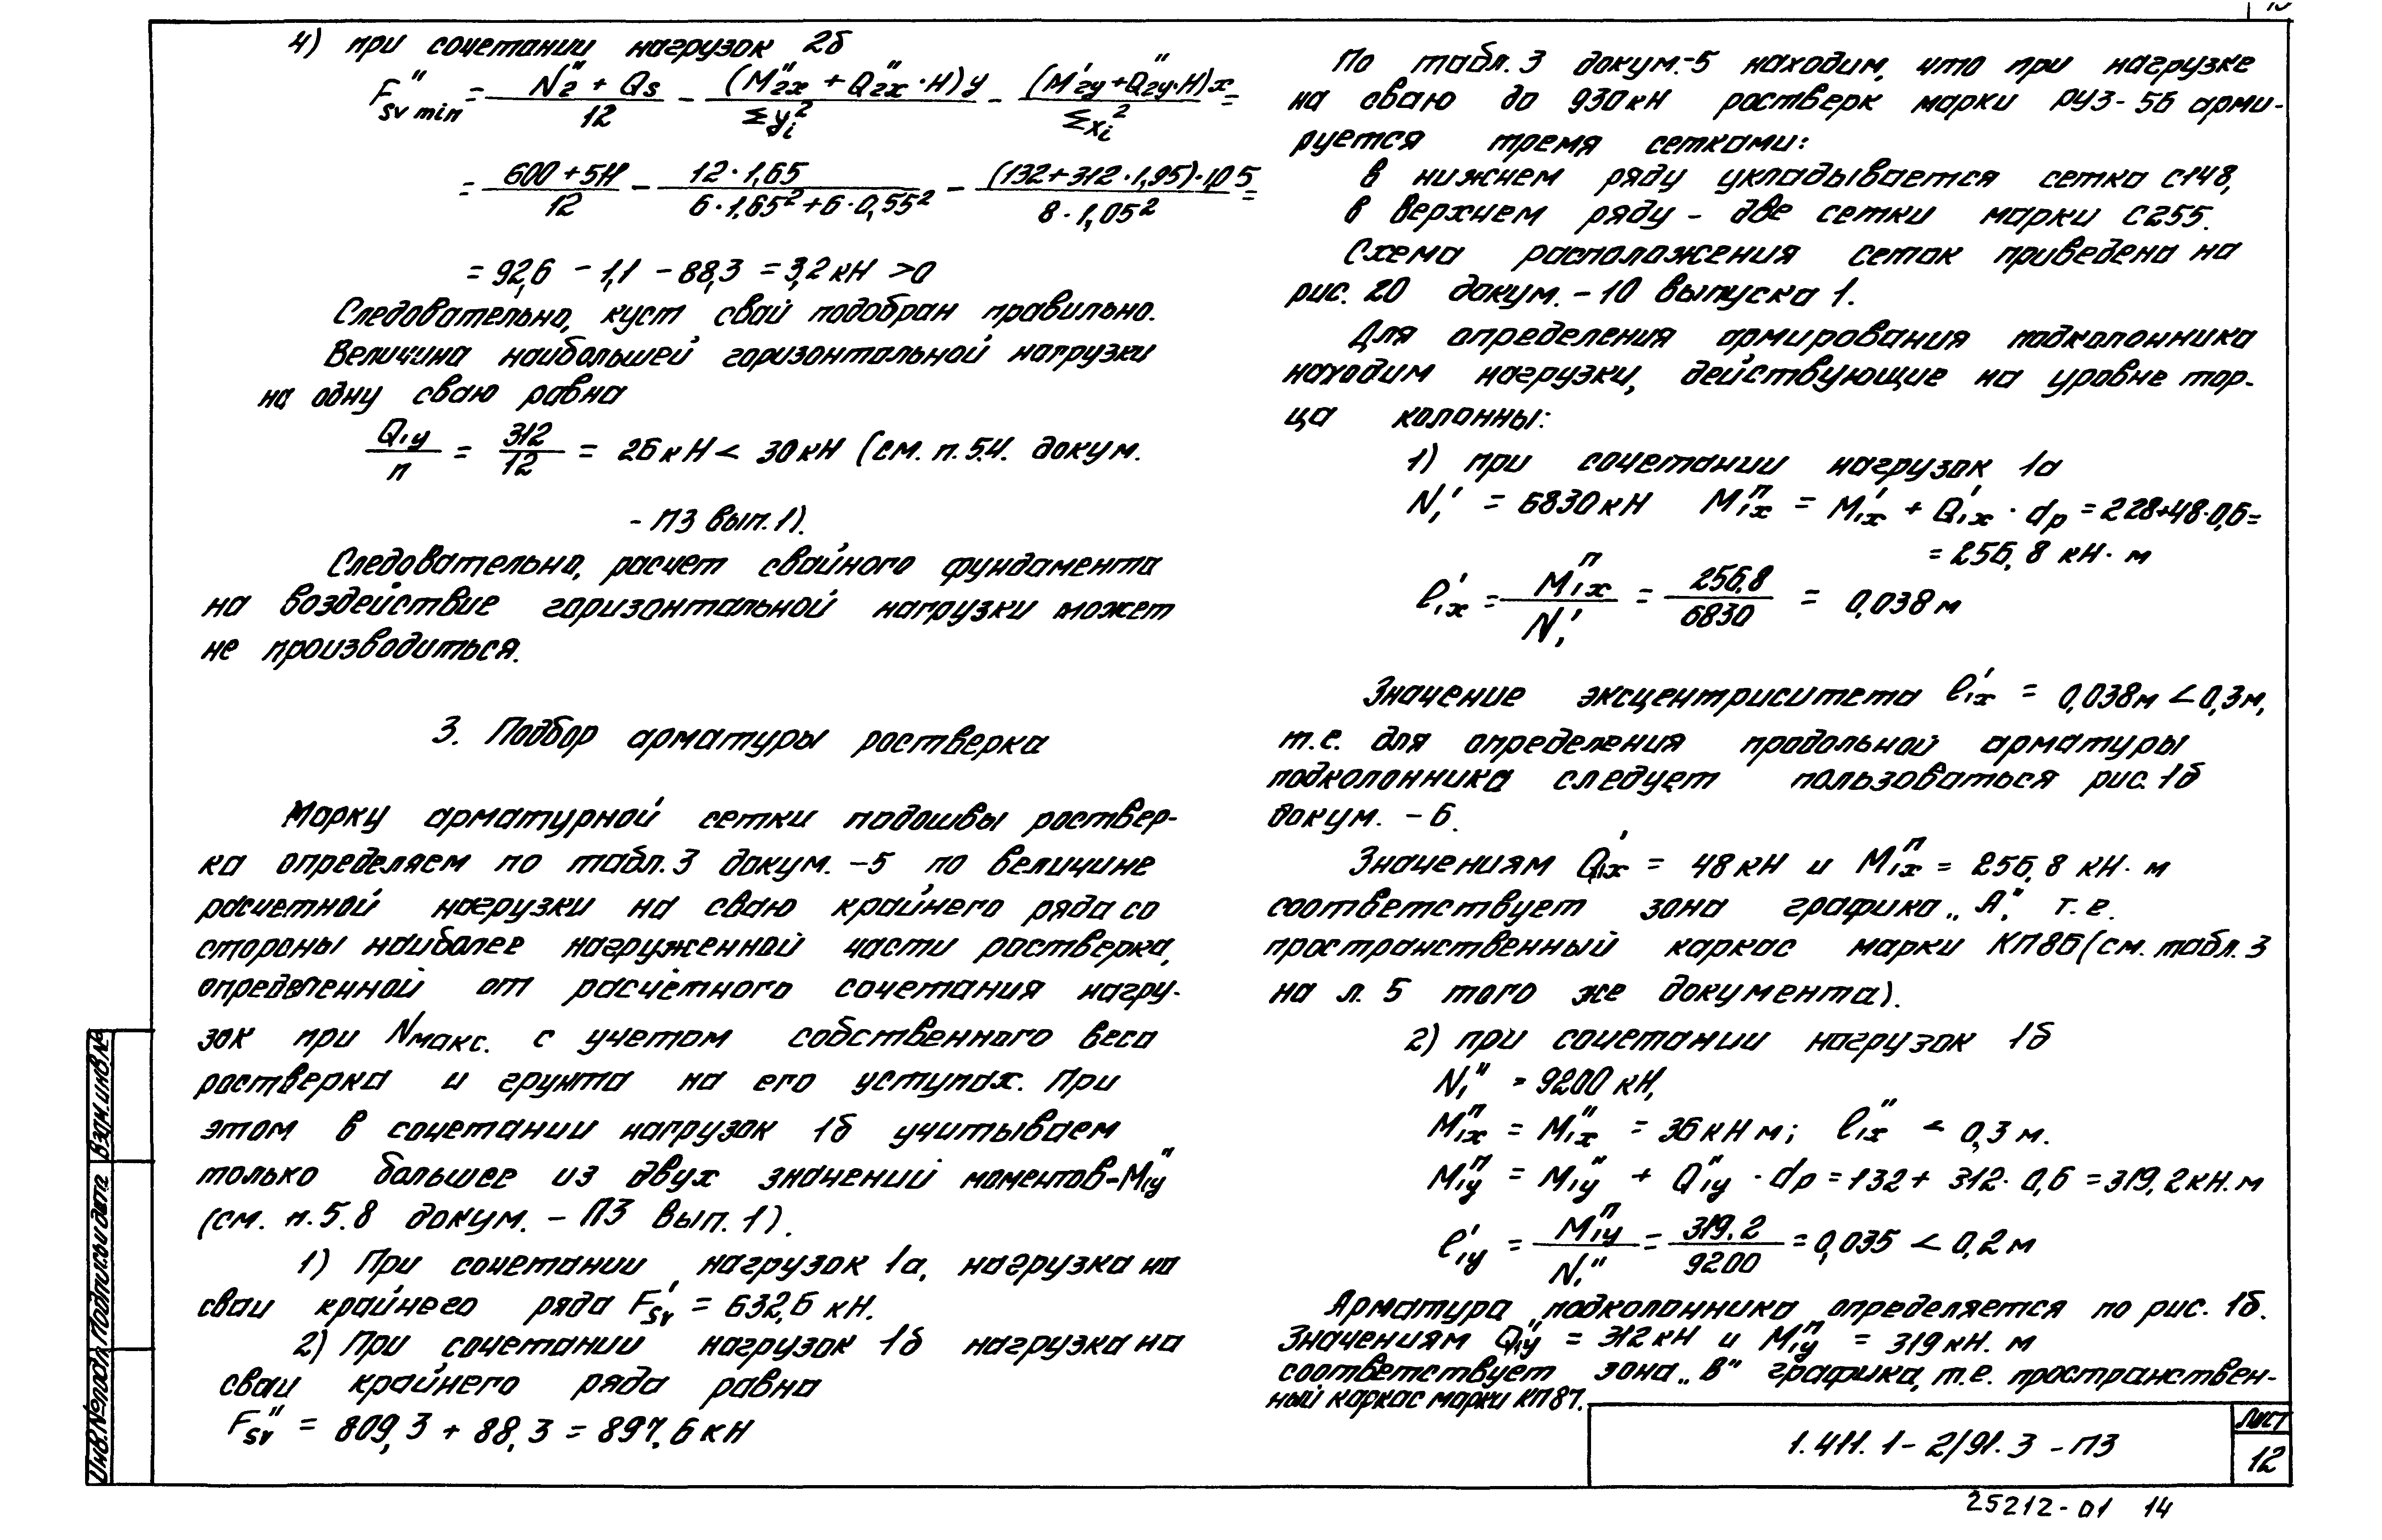 4) при сочетании нагрузок 2б
F''sv min = (N''2 + Qs)/12 - (M''2x + Q''2x · H)y/Σyi² - (M'2y + Q''2y · H)x/Σxi² =
= (600 + 511)/12 - 12 · 1,65/(6 · 1,65² + 6 · 0,55²) - (132 + 312 · 1,95) · 1,05/(8 · 1,05²) =
= 92,6 - 1,1 - 88,3 = 3,2 кН > 0
Следовательно, куст свай подобран правильно.
Величина наибольшей горизонтальной нагрузки
на одну сваю равна
Q1y/n = 312/12 = 26 кН < 30 кН (см. п. 5.4. докум.
- ПЗ вып. 1).
Следовательно, расчет свайного фундамента
на воздействие горизонтальной нагрузки может
не производиться.
3. Подбор арматуры ростверка
Марку арматурной сетки подошвы роствер-
ка определяем по табл. 3 докум. -5 по величине
расчетной нагрузки на сваю крайнего ряда со
стороны наиболее нагруженной части ростверка,
определенной от расчётного сочетания нагру-
зок при Nмакс. с учетом собственного веса
ростверка и грунта на его уступах. При
этом в сочетании нагрузок 1б учитываем
только большее из двух значений моментов - M''1y
(см. п. 5.8 докум. - ПЗ вып. 1).
1) При сочетании нагрузок 1а, нагрузка на
сваи крайнего ряда F'sv = 632,6 кН.
2) При сочетании нагрузок 1б нагрузка на
сваи крайнего ряда равна
F''sv = 809,3 + 88,3 = 897,6 кН
По табл. 3 докум. -5 находим, что при нагрузке
на сваю до 930 кН ростверк марки РУ3-56 арми-
руется тремя сетками:
в нижнем ряду укладывается сетка С148,
в верхнем ряду - две сетки марки С255.
Схема расположения сеток приведена на
рис. 20 докум. -10 выпуска 1.
Для определения армирования подколонника
находим нагрузки, действующие на уровне тор-
ца колонны:
1) при сочетании нагрузок 1а
N'1 = 6830 кН Mп1x = M'1x + Q'1x · dp = 228 + 48 · 0,6 =
= 256,8 кН · м
l'1x = Mп1x/N'1 = 256,8/6830 = 0,038 м
Значение эксцентриситета l'1x = 0,038 м < 0,3 м,
т.е. для определения продольной арматуры
подколонника следует пользоваться рис. 1б
докум. - 6.
Значениям Q'1x = 48 кН и Mп1x = 256,8 кН · м
соответствует зона графика „А", т.е.
пространственный каркас марки КП86 (см. табл. 3
на л. 5 того же документа).
2) при сочетании нагрузок 1б
N''1 = 9200 кН,
Mп1x = M''1x = 36 кН м; l''1x < 0,3 м.
Mп1y = M''1y + Q''1y · dp = 132 + 312 · 0,6 = 319,2 кН.м
l'1y = Mп1y/N''1 = 319,2/9200 = 0,035 < 0,2 м
Арматура подколонника определяется по рис. 1б.
Значениям Q''1y = 312 кН и Mп1y = 319 кН. м
соответствует зона „В" графика, т.е. пространствен-
ный каркас марки КП87.
1.411.1-2/91.3 -ПЗ
Лист
12
25212-01 14
Инв.№подл. Подпись и дата Взам.инв.№